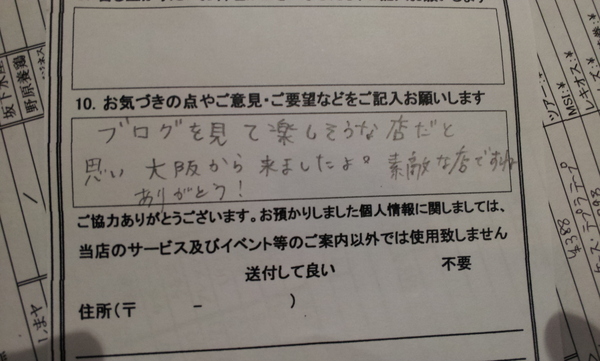 10. お気づきの点やご意見・ご要望などをご記入お願いします
ブログを見て楽しそうな店だと
思い 大阪から来ましたよ。素敵な店ですね
ありがとう!
ご協力ありがとうございます。お預かりしました個人情報に関しましては、
当店のサービス及びイベント等のご案内以外では使用致しません
送付して良い 不要
住所(〒 - )
坂下水産
野原養鶏
ツアー:※
MSI:※
レキオス:※
¥388